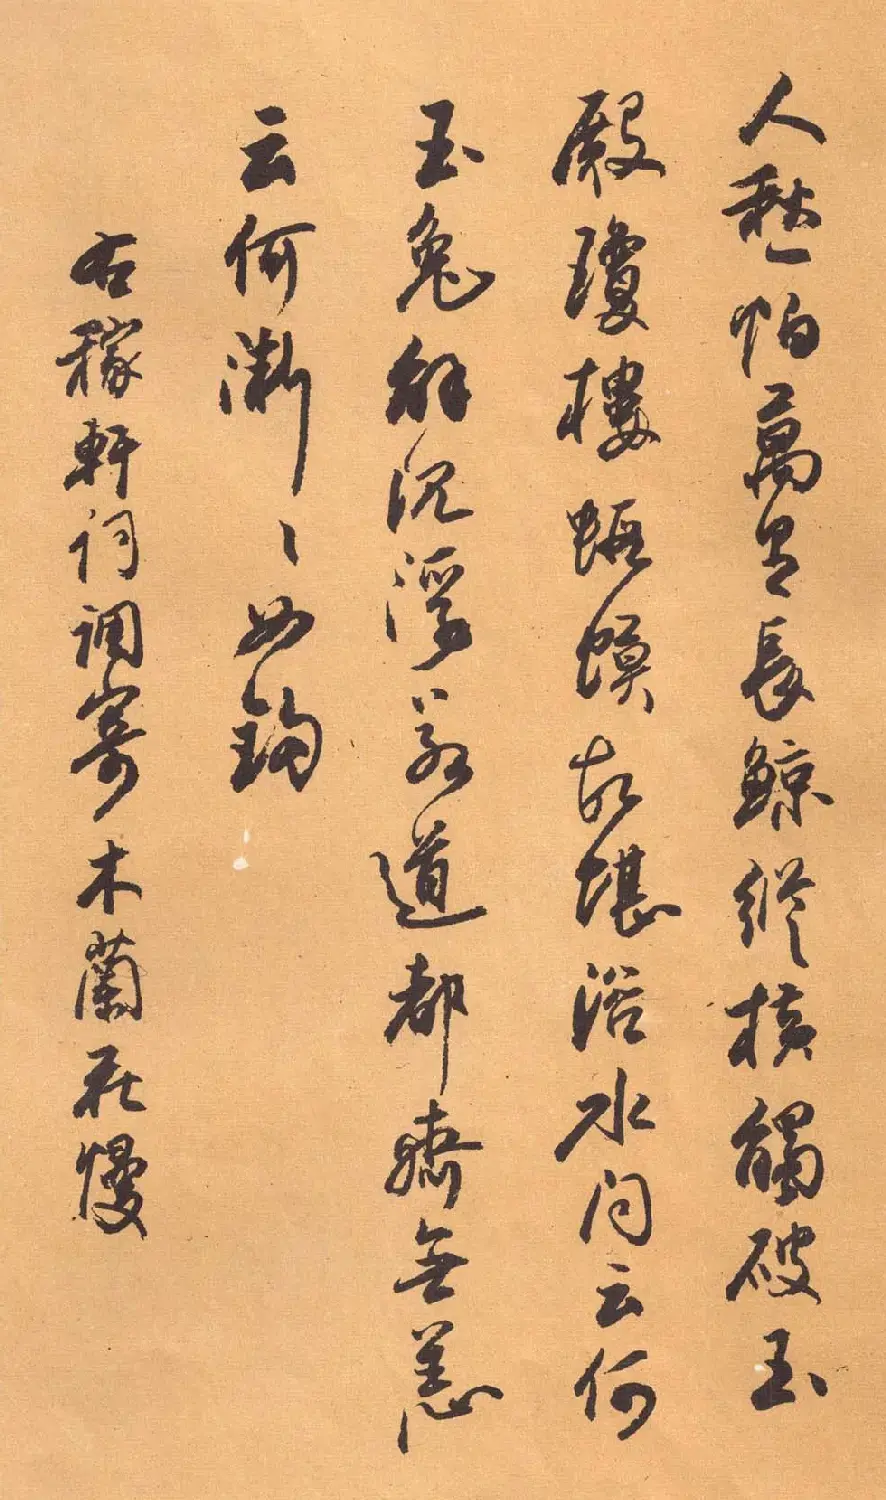 人愁怕萬里長鯨縱橫觸破玉
殿瓊樓蝦蟆故堪浴水問云何
玉兔解沉浮若道都齊無恙
云何漸〻如鉤
右稼軒詞調寄木蘭花慢